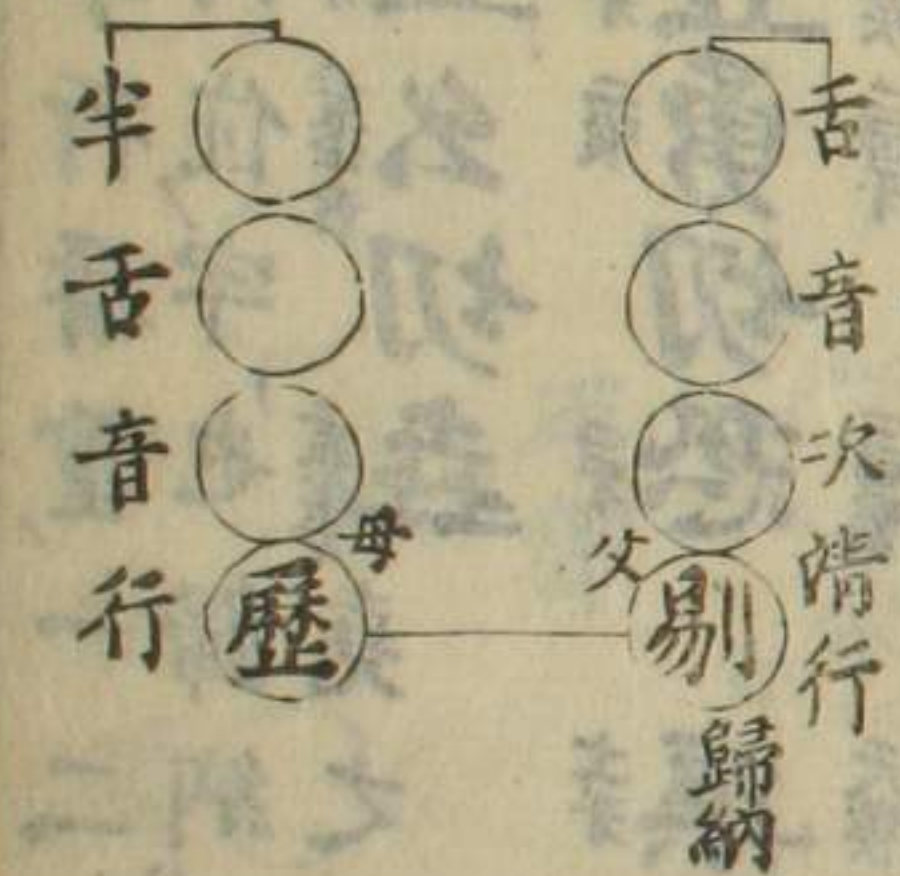 舌音次清行
父
剔
歸納
母
歷
半舌音行